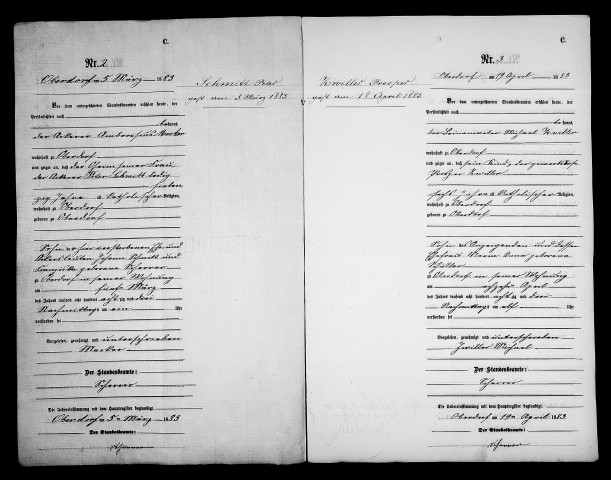 C.
Nr. 2
Oberdorf am 5 März 1883
Vor dem unterzeichneten Standesbeamten erschien heute, der
Persönlichkeit nach
bekannt,
der Ackerer
wohnhaft zu Oberdorf
und zeigte an, daß der seiner Frau
der Ackerer Peter Schmitt ledig
sieben
zig Jahre alt katholischer Religion,
wohnhaft zu Oberdorf
geboren zu Oberdorf
Sohn der verstorbenen und
Ackersleuten Johann Schmitt und
geborene Scherrer
zu Oberdorf in seiner Wohnung
am fünften März
des Jahres tausend acht hundert achtzig und drei
Nachmittags um ein Uhr
verstorben sei
Vorgelesen, genehmigt und unterschrieben
Der Standesbeamte:
Scherrer
Die Uebereinstimmung mit dem Hauptregister beglaubigt
Oberdorf am 5n März 1883
Der Standesbeamte:
Scherrer
Schmitt Peter
gest. am 5 März 1883
Zwiller Prosper
gest. am 18 April 1883
C.
Nr. 3
Oberdorf am 19 April 1883
Vor dem unterzeichneten Standesbeamten erschien heute, der
Persönlichkeit nach
bekannt,
der Leineweber Michael Zwiller
wohnhaft zu Oberdorf
und zeigte an, daß sein Kind
Prosper Zwiller
sechs Jahre alt katholischer Religion,
wohnhaft zu Oberdorf
geboren zu Oberdorf
Sohn des Anzeigenden und dessen
Ehefrau Maria Anna geborene
zu Oberdorf in seiner Wohnung
am achtzehn April
des Jahres tausend acht hundert achtzig und drei
Nachmittags um elf Uhr
verstorben sei
Vorgelesen, genehmigt und unterschrieben
Zwiller Michael
Der Standesbeamte:
Scherrer
Die Uebereinstimmung mit dem Hauptregister beglaubigt
Oberdorf am 19n April 1883
Der Standesbeamte:
Scherrer